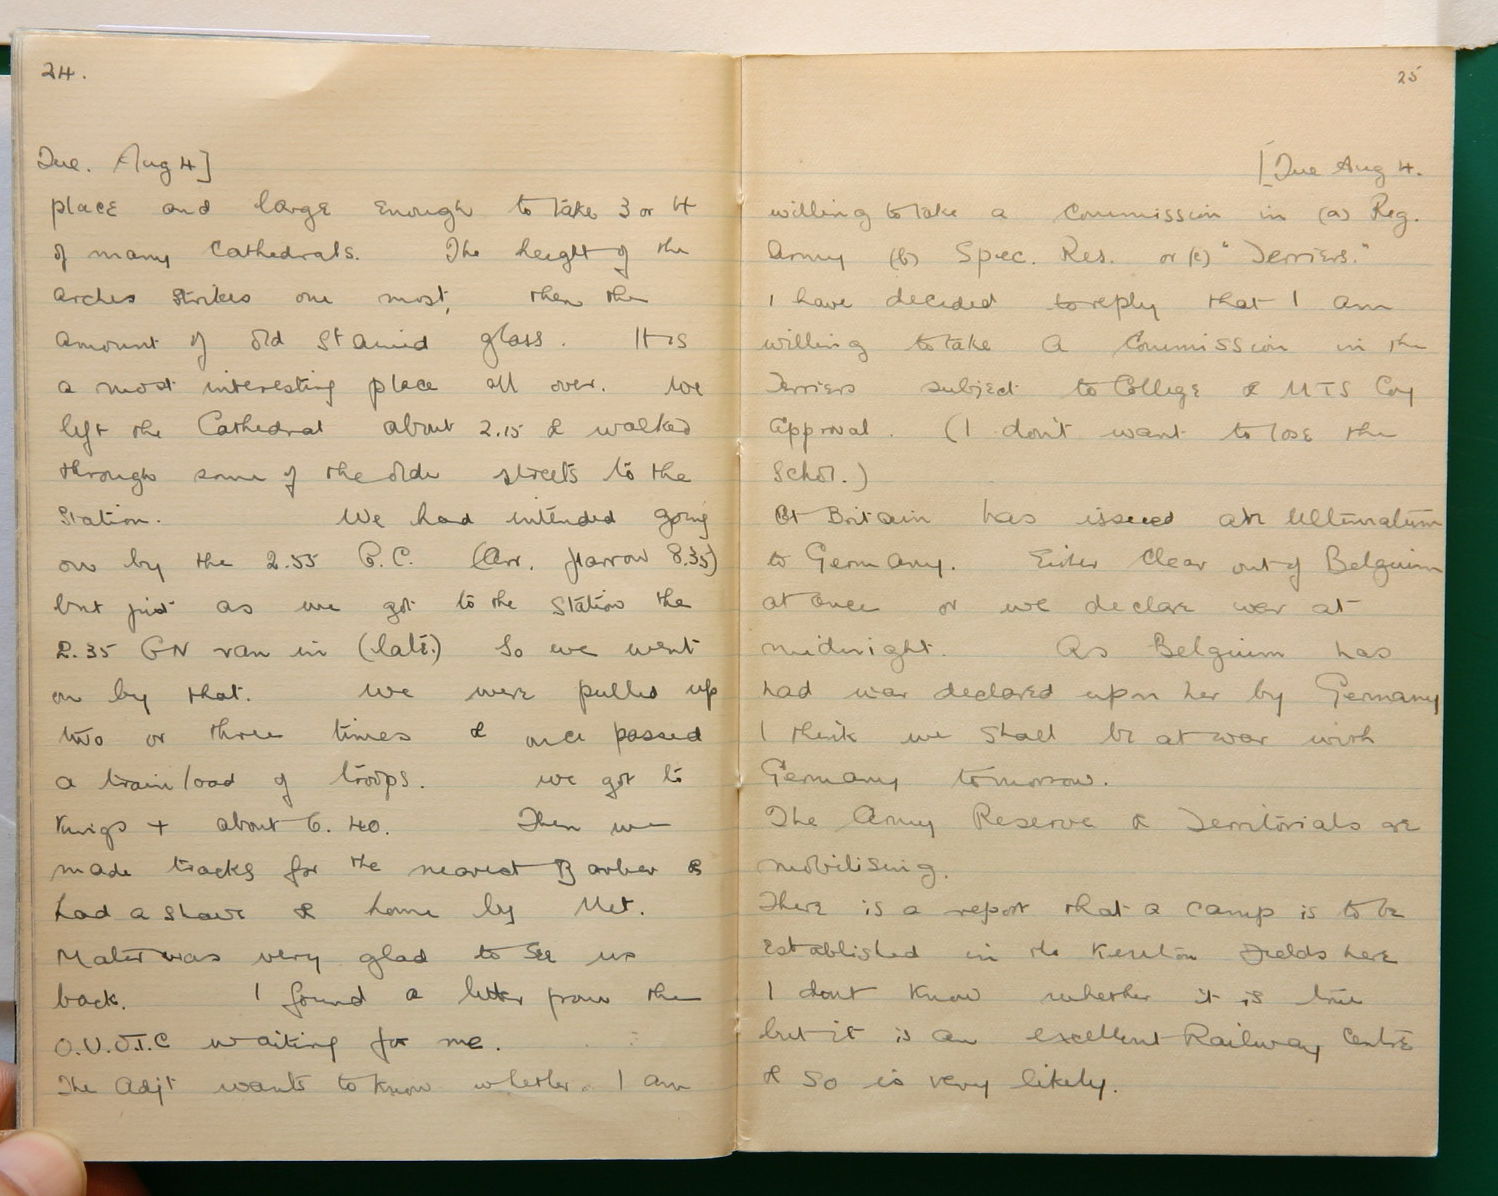 24.
Tue. Aug 4]
place and large enough to take 3 or 4
of many Cathedrals. The height of the
arches strikes one most, then the
amount of old stained glass. It is
a most interesting place all over. We
left the Cathedral about 2.15 & walked
through some of the older streets to the
Station. We had intended going
on by the 2.55 G.C. (Arr. Harrow 8.35)
but just as we got to the Station the
2.35 GN ran in (late.) So we went
on by that. We were pulled up
two or three times & once passed
a train load of troops. We got to
Kings + about 6.40. Then we
made tracks for the nearest Barber &
had a shave & home by Met.
Mater was very glad to see us
back. I found a letter from the
O.U.O.T.C waiting for me.
The Adjt wants to know whether I am
25
[Tue Aug 4.
willing to take a Commission in (a) Reg.
Army (b) Spec. Res. or (c) "Terriers."
I have decided to reply that I am
willing to take a Commission in the
Terriers subject to College & MTS Coy
Approval. (I don't want to lose the
Schol.)
Gt Britain has issued an Ultimatum
to Germany. Either Clear out of Belguim
at once or we declare war at
midnight. As Belguim has
had war declared upon her by Germany
I think we shall be at war with
Germany tomorrow.
The Army Reserve & Territorials are
mobilising.
There is a report that a camp is to be
established in the Kenton Fields here
I dont know whether it is true
but it is an excellent Railway Centre
& so is very likely.